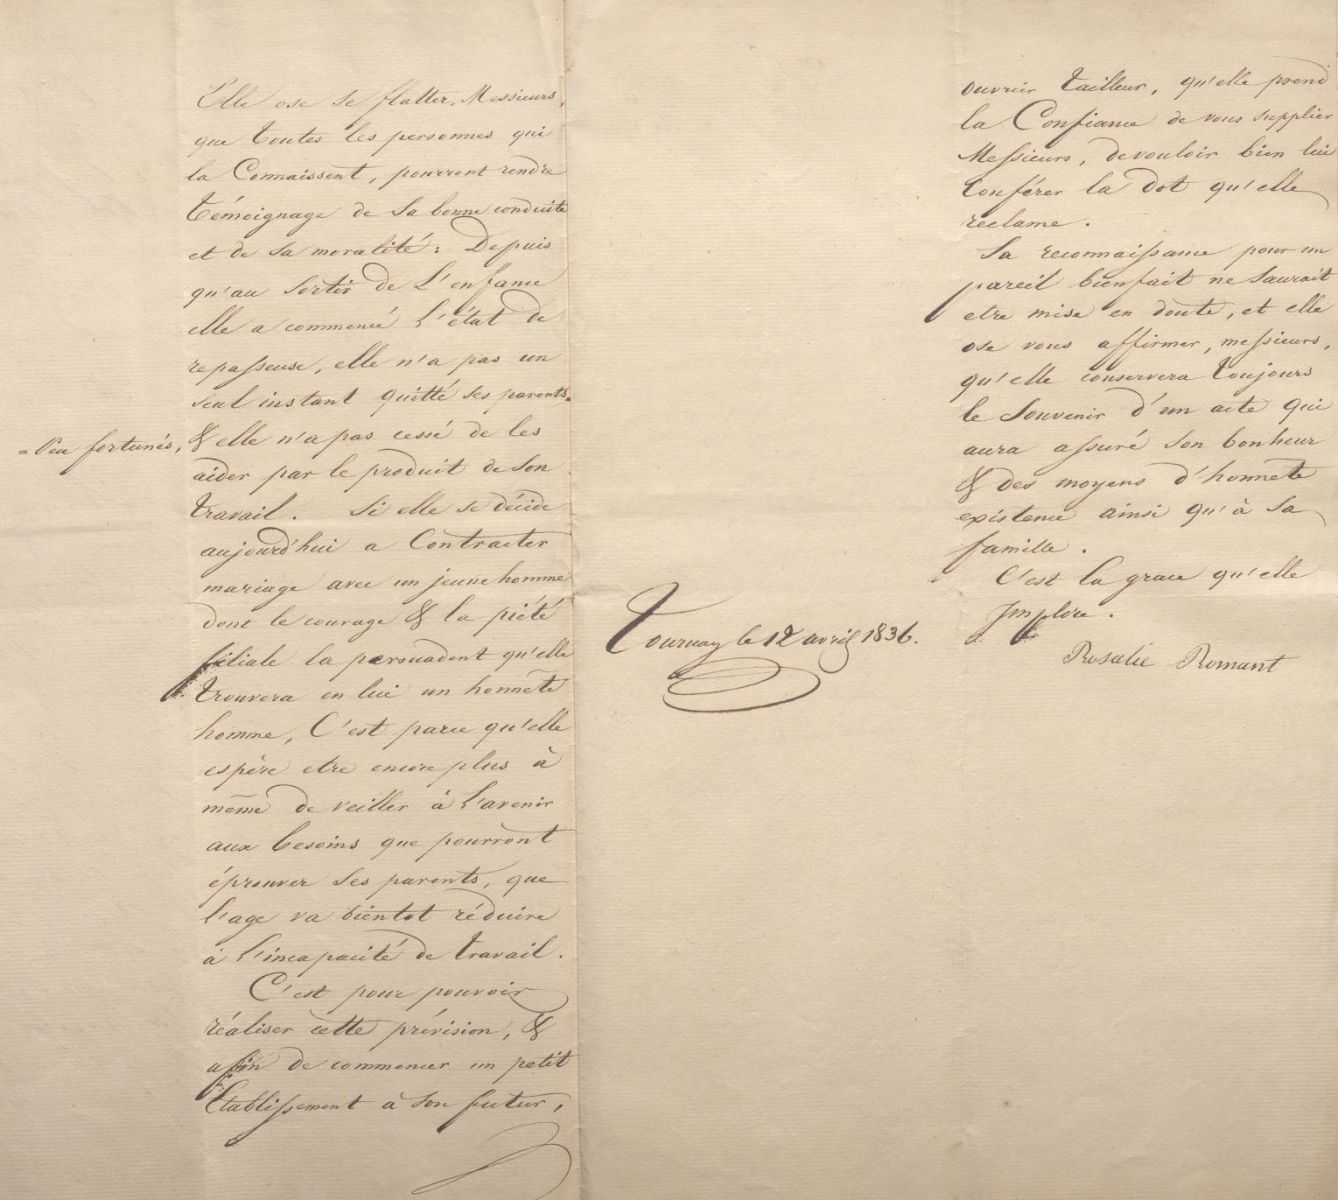 Elle ose se flatter, Messieurs,
que toutes les personnes qui
la Connaissent, pourront rendre
témoignage de sa bonne conduite
et de sa moralité : Depuis
qu'au sortir de L'enfance
elle a commencé L'état de
repasseuse, elle n'a pas un
seul instant quitté ses parents
= Peu fortunés,
& elle n'a pas cessé de les
aider par le produit de son
travail. Si elle se décide
aujourd'hui a Contracter
mariage avec un jeune homme
dont le courage & la piété
filiale la persuadent qu'elle
trouvera en lui un honnête
homme, C'est parce qu'elle
espère etre encore plus à
même de veiller à l'avenir
aux besoins que pourront
éprouver ses parents, que
l'age va bientot réduire
à l'incapacité de travail.
C'est pour pouvoir
réaliser cette prévision, &
afin de commencer un petit
Etablissement à son futur,
ouvrier tailleur, qu'elle prend
la Confiance de vous supplier
Messieurs, de vouloir bien lui
conférer la dot qu'elle
reclame.
Sa reconnaissance pour un
pareil bienfait ne saurait
etre mise en doute, et elle
ose vous affirmer, messieurs,
qu'elle conservera toujours
le souvenir d'un acte qui
aura assuré son bonheur
& des moyens d'honnete
existence ainsi qu'à sa
famille.
C'est la grace qu'elle
Implore.
Rosalie Romant
Tournay le 12 avril 1836.